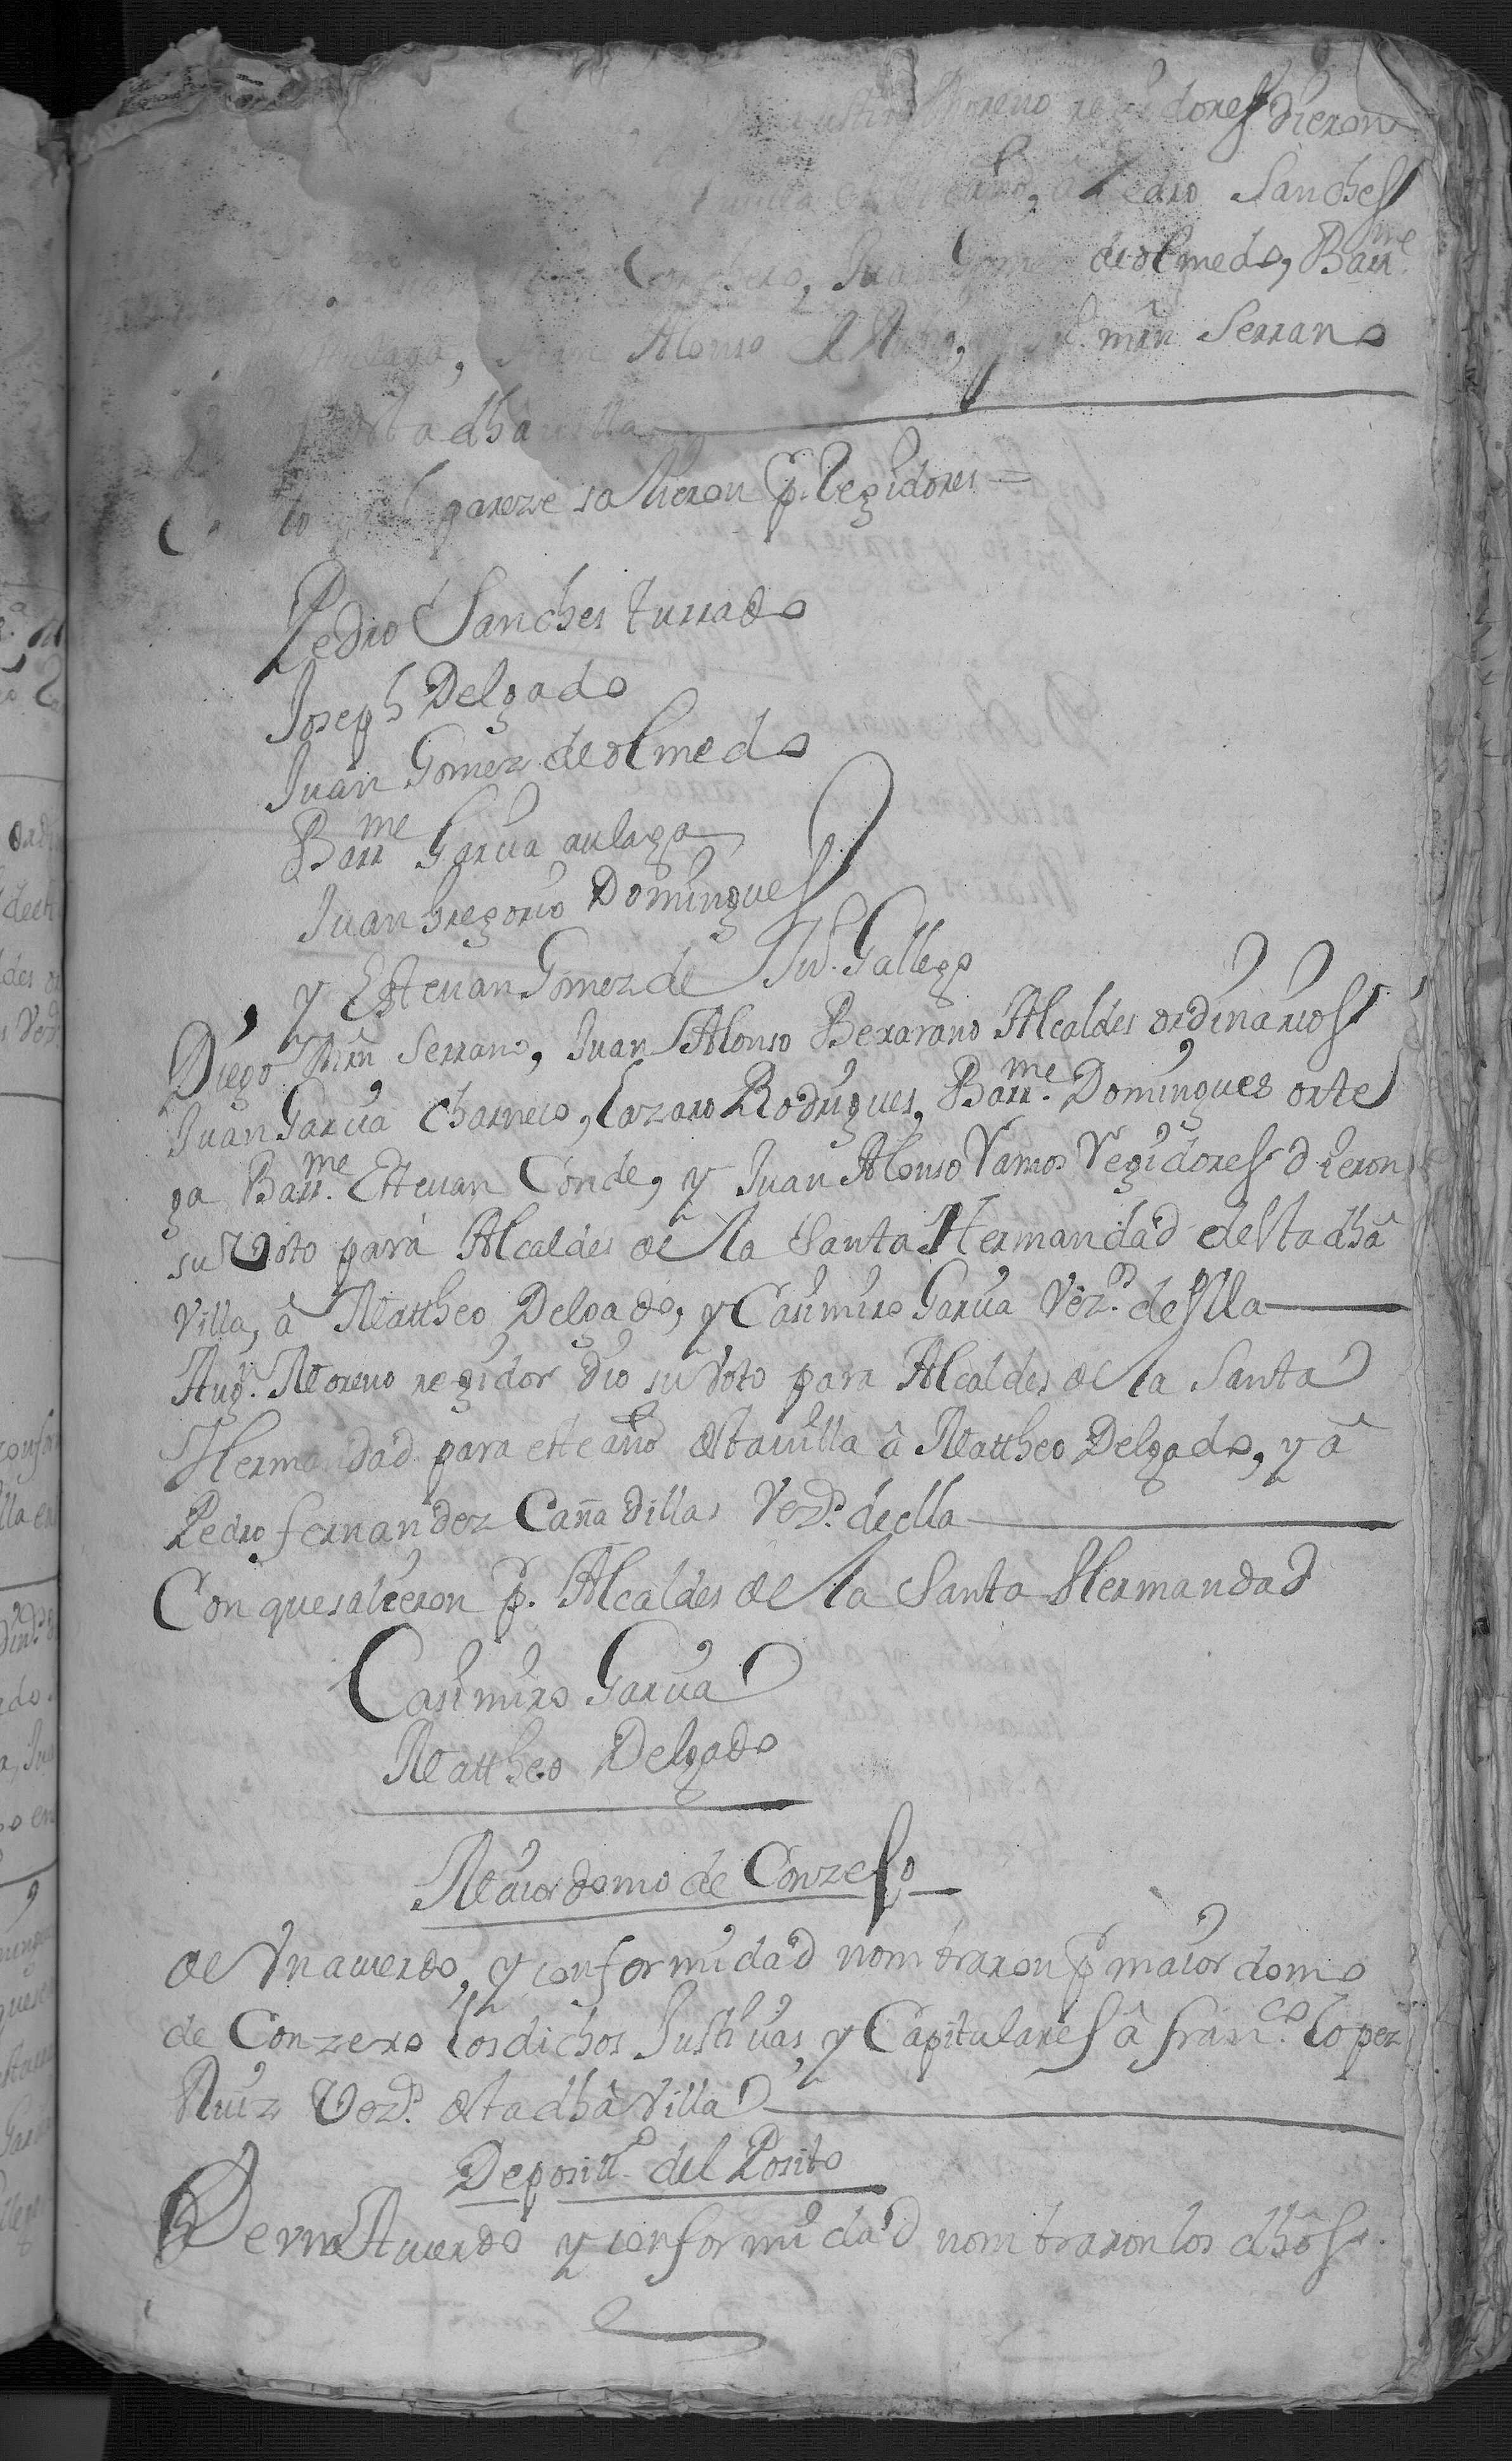 Moreno regidores dieron
año, â Pedro Sanches
Juan Gomez de olmedo, Barr.me
Juan Alonso mrn Serrano
desta dha villa
pareze salieron p. Regidores =
Pedro Sanches turrado
Joseph Delgado
Juan Gomez de olmedo
Barr.me Garcia aulaga
Juan Gregorio Domingues
y Estevan Gomez de Ju.º Gallego
Diego Mrn Serrano, Juan Alonso Bexarano Alcaldes ordinarios
Juan Garcia Charneco, Lazaro Rodrigues, Barr.me Domingues orte
ga Barr.me Estevan Conde, y Juan Alonso Vamos Regidores dieron
su Voto para Alcaldes de la Santa Hermandad desta dhâ
Villa, â Mattheo Delgado, y Casimiro Garcia Vez.os de ella
Aug. Moreno regidor dio su Voto para Alcaldes de la Santa
Hermandad para este año desta villa â Mattheo Delgado, y â
Pedro fernandez Cañadillas Vez.os de ella
Con que salieron p. Alcaldes de la Santa Hermandad
Casimiro Garcia
Mattheo Delgado
Maiordomo de Conzejo
de Vn acuerdo, y conformidad nombraron p maiordomo
de Conzexo los dichos Justicias, y Capitulares â fran.co Lopez
Ruiz Vez.o desta dhâ Villa
Deposit.o del Posito
De vn Acuerdo y conformidad nombraron los dhôs